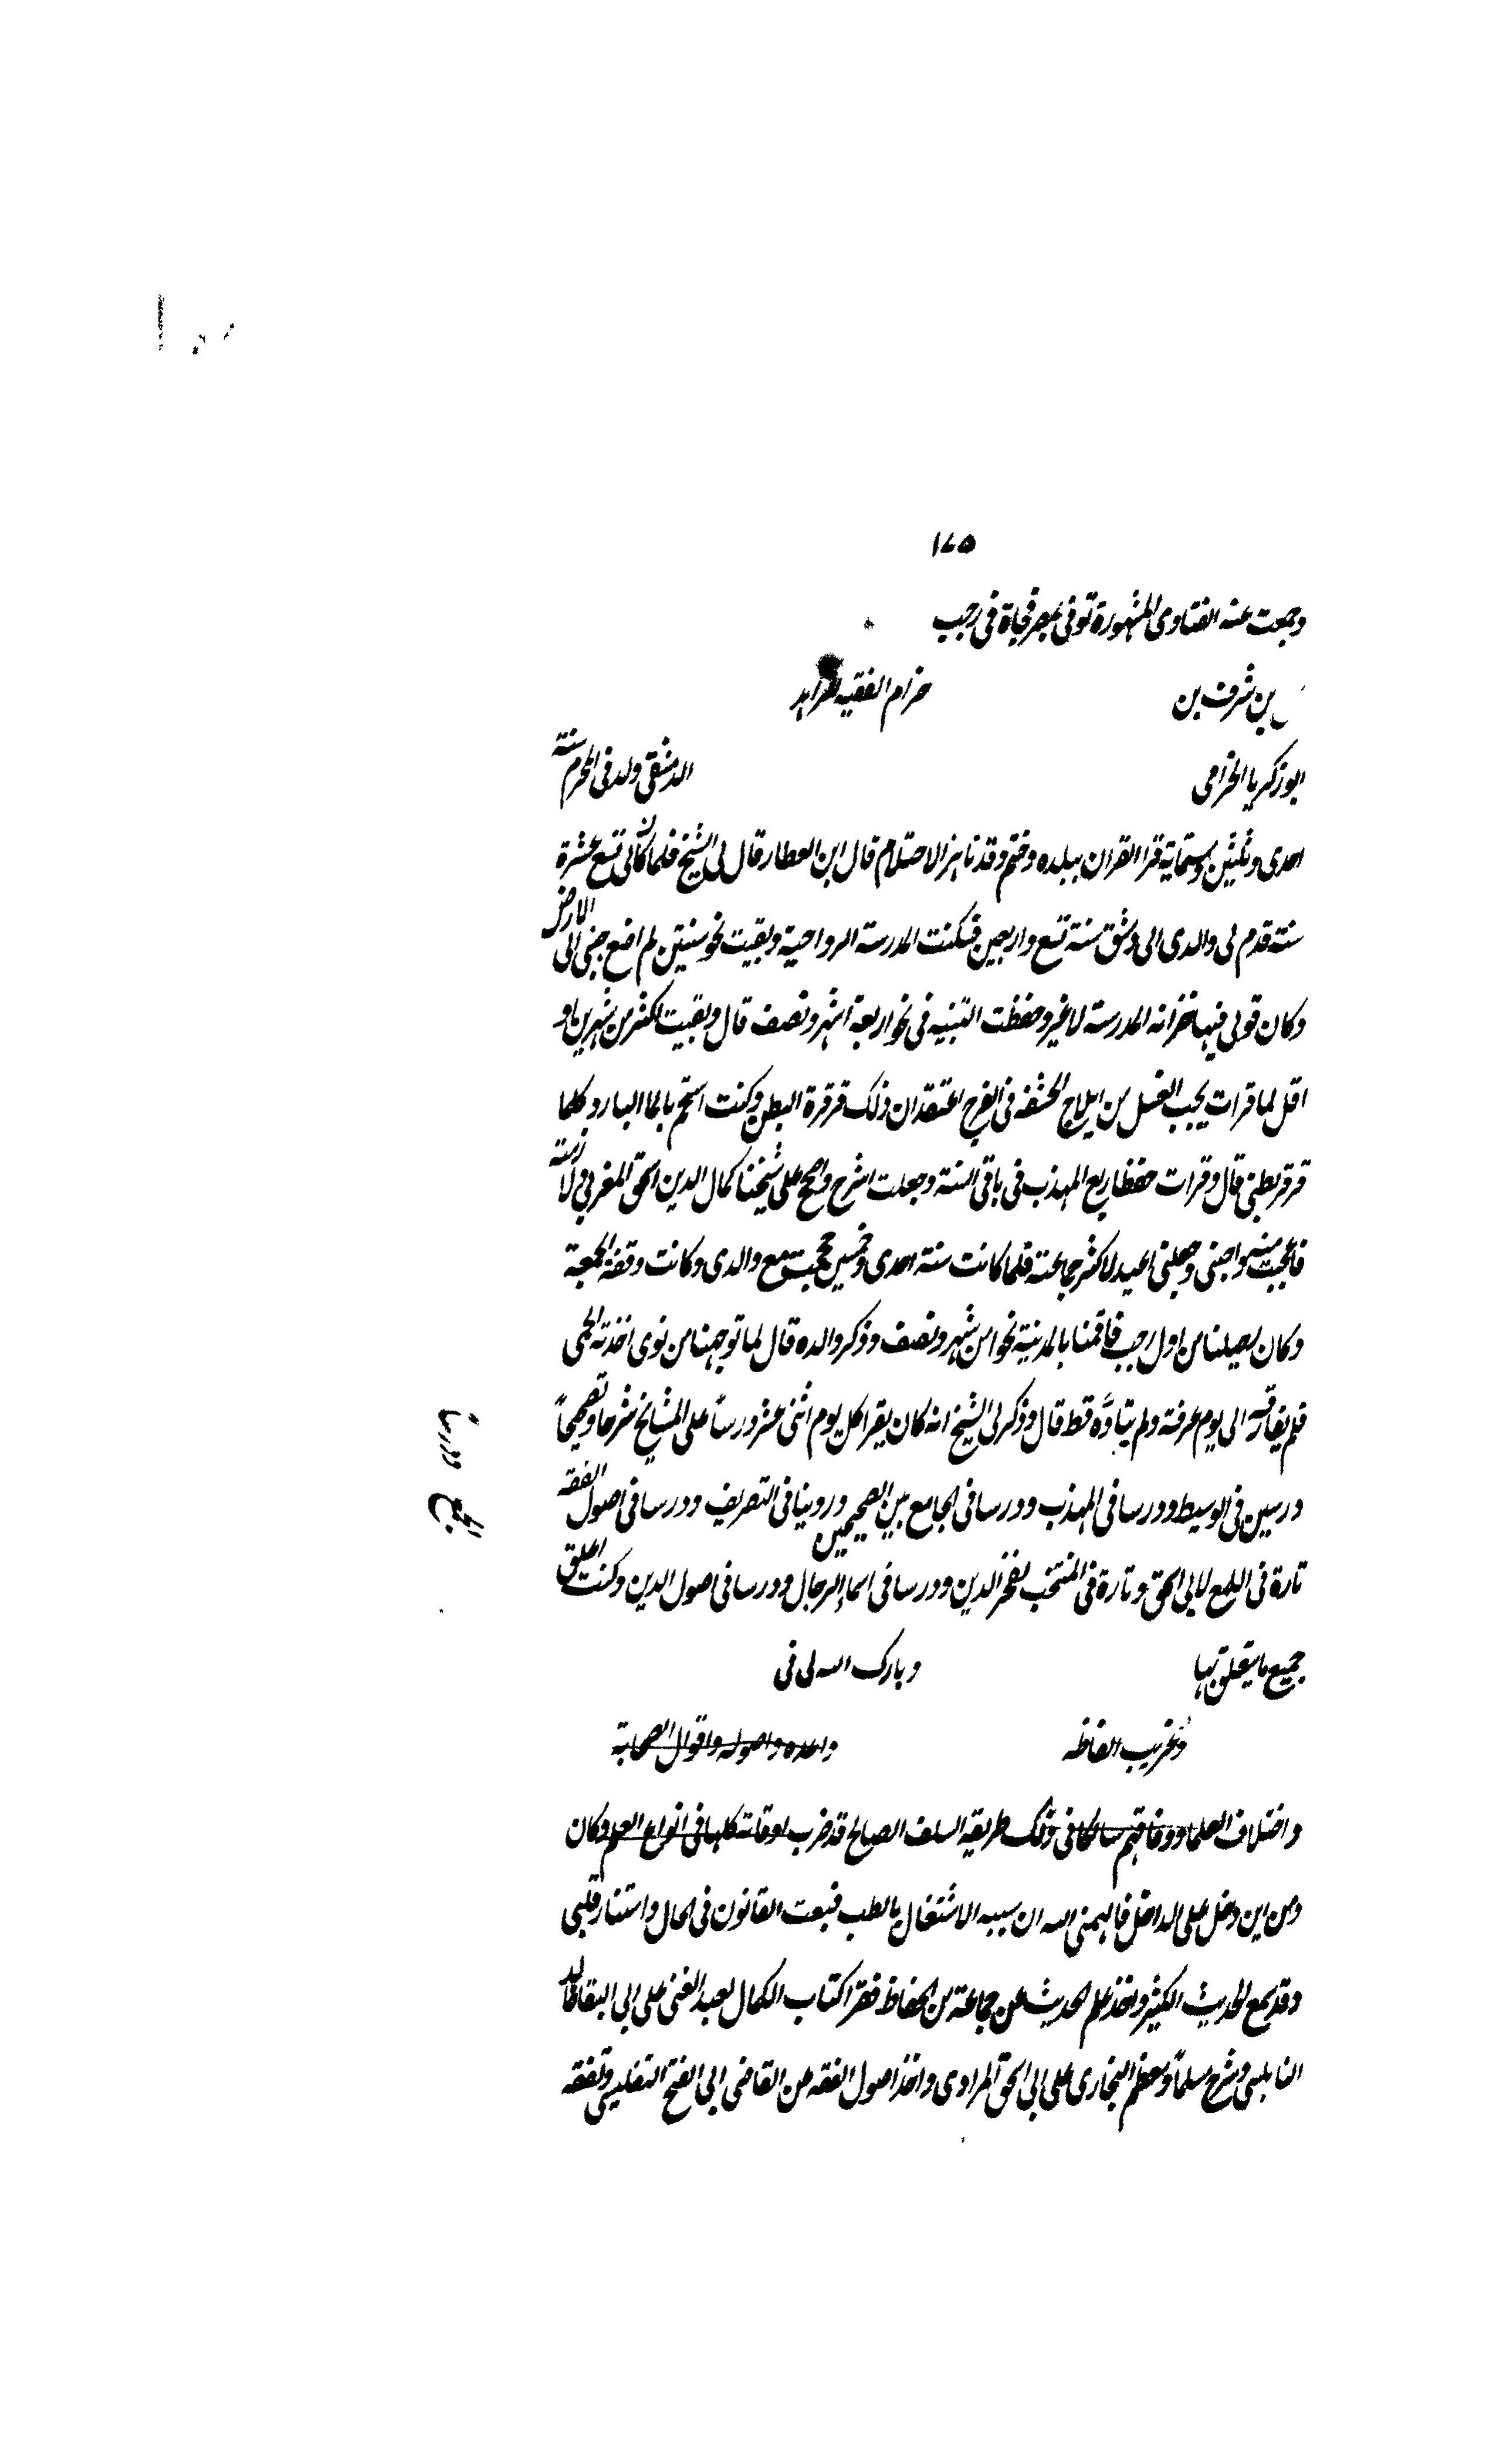 ١٧٥
وجمعت عنه الفتاوى المشهورة توفى بمصر فجاة فى رجب
بن شرف بن حزام الفقيه الزاهد
ابو زكريا الحزامى الدمشقى ولد فى المحرم سنة
احدى وثلثين وستماية قرا القران ببلده وختم وقد ناهز الاحتلام قال ابن العطار قال لى الشيخ فلما كان لى تسع عشرة
سنة قدم لى والدى الى دمشق سنة تسع واربعين فسكنت المدرسة الرواحية وبقيت نحو سنتين لم اضع جنبى الى الارض
وكان قوتى فيها خزانه المدرسة لا غير وحفظت التنبيه فى نحو اربعة اشهر ونصف قال وبقيت اكثر من شهرين او
اقل لما قرات يجب الغسل من ايلاج الحشفه فى الفرج اعتقد ان ذلك قرقرة البطن وكنت استحم بالما البارد كلما
قرقر بطنى قال وقرات حفظا ربع المهذب فى باقى السنة وجعلت اشرح واصحح على شيخنا كمال الدين اسحق المغربى لازمته
فاعجب بى واحبنى وجعلنى اعيد لاكثر جماعته فلما كانت سنة احدى وخمسين حججت مع والدى وكانت وقفة الجمعة
وكان رحيلنا من اول رجب فاقمنا بالمدينة نحوا من شهر ونصف وذكر والده قال لما توجهنا من نوى اخذته الحمى
فلم تفارقه الى يوم عرفة ولم يتاوه قط قال وذكر لى الشيخ انه كان يقرا كل يوم اثنى عشر درسا على المشايخ شرحا وتصحيحاً
درسين فى الوسيط ودرسا فى المهذب ودرسا فى الجامع بين الصحيحين ودرسا فى التصريف ودرسا فى اصول الفقه
تارة فى اللمع لابى اسحق وتارة فى المنتخب لفخر الدين ودرسا فى اسماء الرجال ودرسا فى اصول الدين وكنت اعلق
جميع ما يتعلق بها وبارك الله لى فى
وغريب الفاظه واصوله واقوال الصحابة
واختلاف العلما ووفاقهم سالكا فى ذلك طريقة السلف الصالح قد ضرب اوقاته كلها فى انواع العلم وكان
ومن اين دخل على الداخل فالهمنى الله ان سببه الاشتغال بالطب فبعت القانون فى الحال واستنار قلبى
وقد سمع الحديث الكثير واخذ علم الحديث عن جماعة من الحفاظ فقرا كتاب الكمال لعبد الغنى على ابى البقا خالد
النابلسى وشرح مسلما ومعظم البخارى على ابى اسحق المرادى واخذ اصول الفقه من القاضى ابى الفتح التفليسى وتفقه